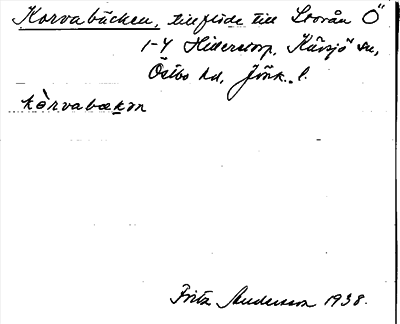 Korvabäcken, tillflöde till Storån Ö
1-4 Hillerstorp, Kävsjö sn,
Östbo hd, Jönk. l.
kòrvabækən
Fritz Andersson 1938.